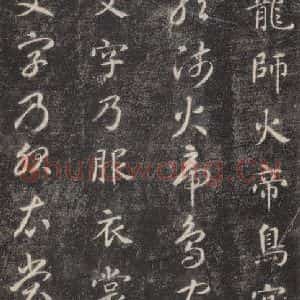 龍師火帝鳥官
龍師火帝鳥官
文字乃服衣裳
文字乃服衣裳